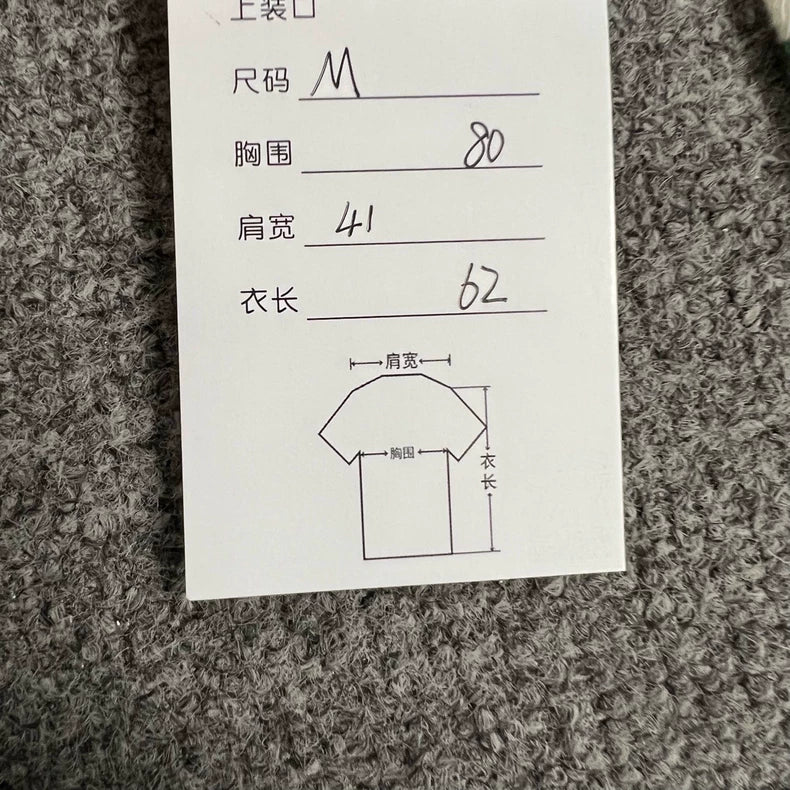 上装口
尺码 M
胸围 80
肩宽 41
衣长 62
肩宽
胸围
衣长